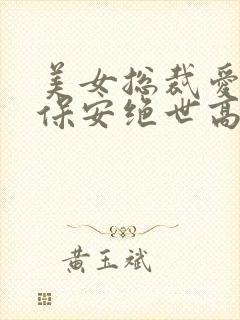 美女总裁爱
保安绝世高
黄玉斌